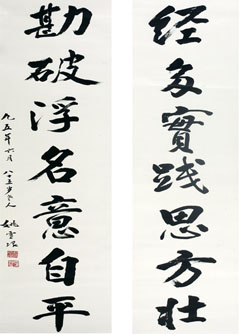 经多實践思方壮
勘破浮名意自平
九五年六月
八十五岁老人
姚雪垠